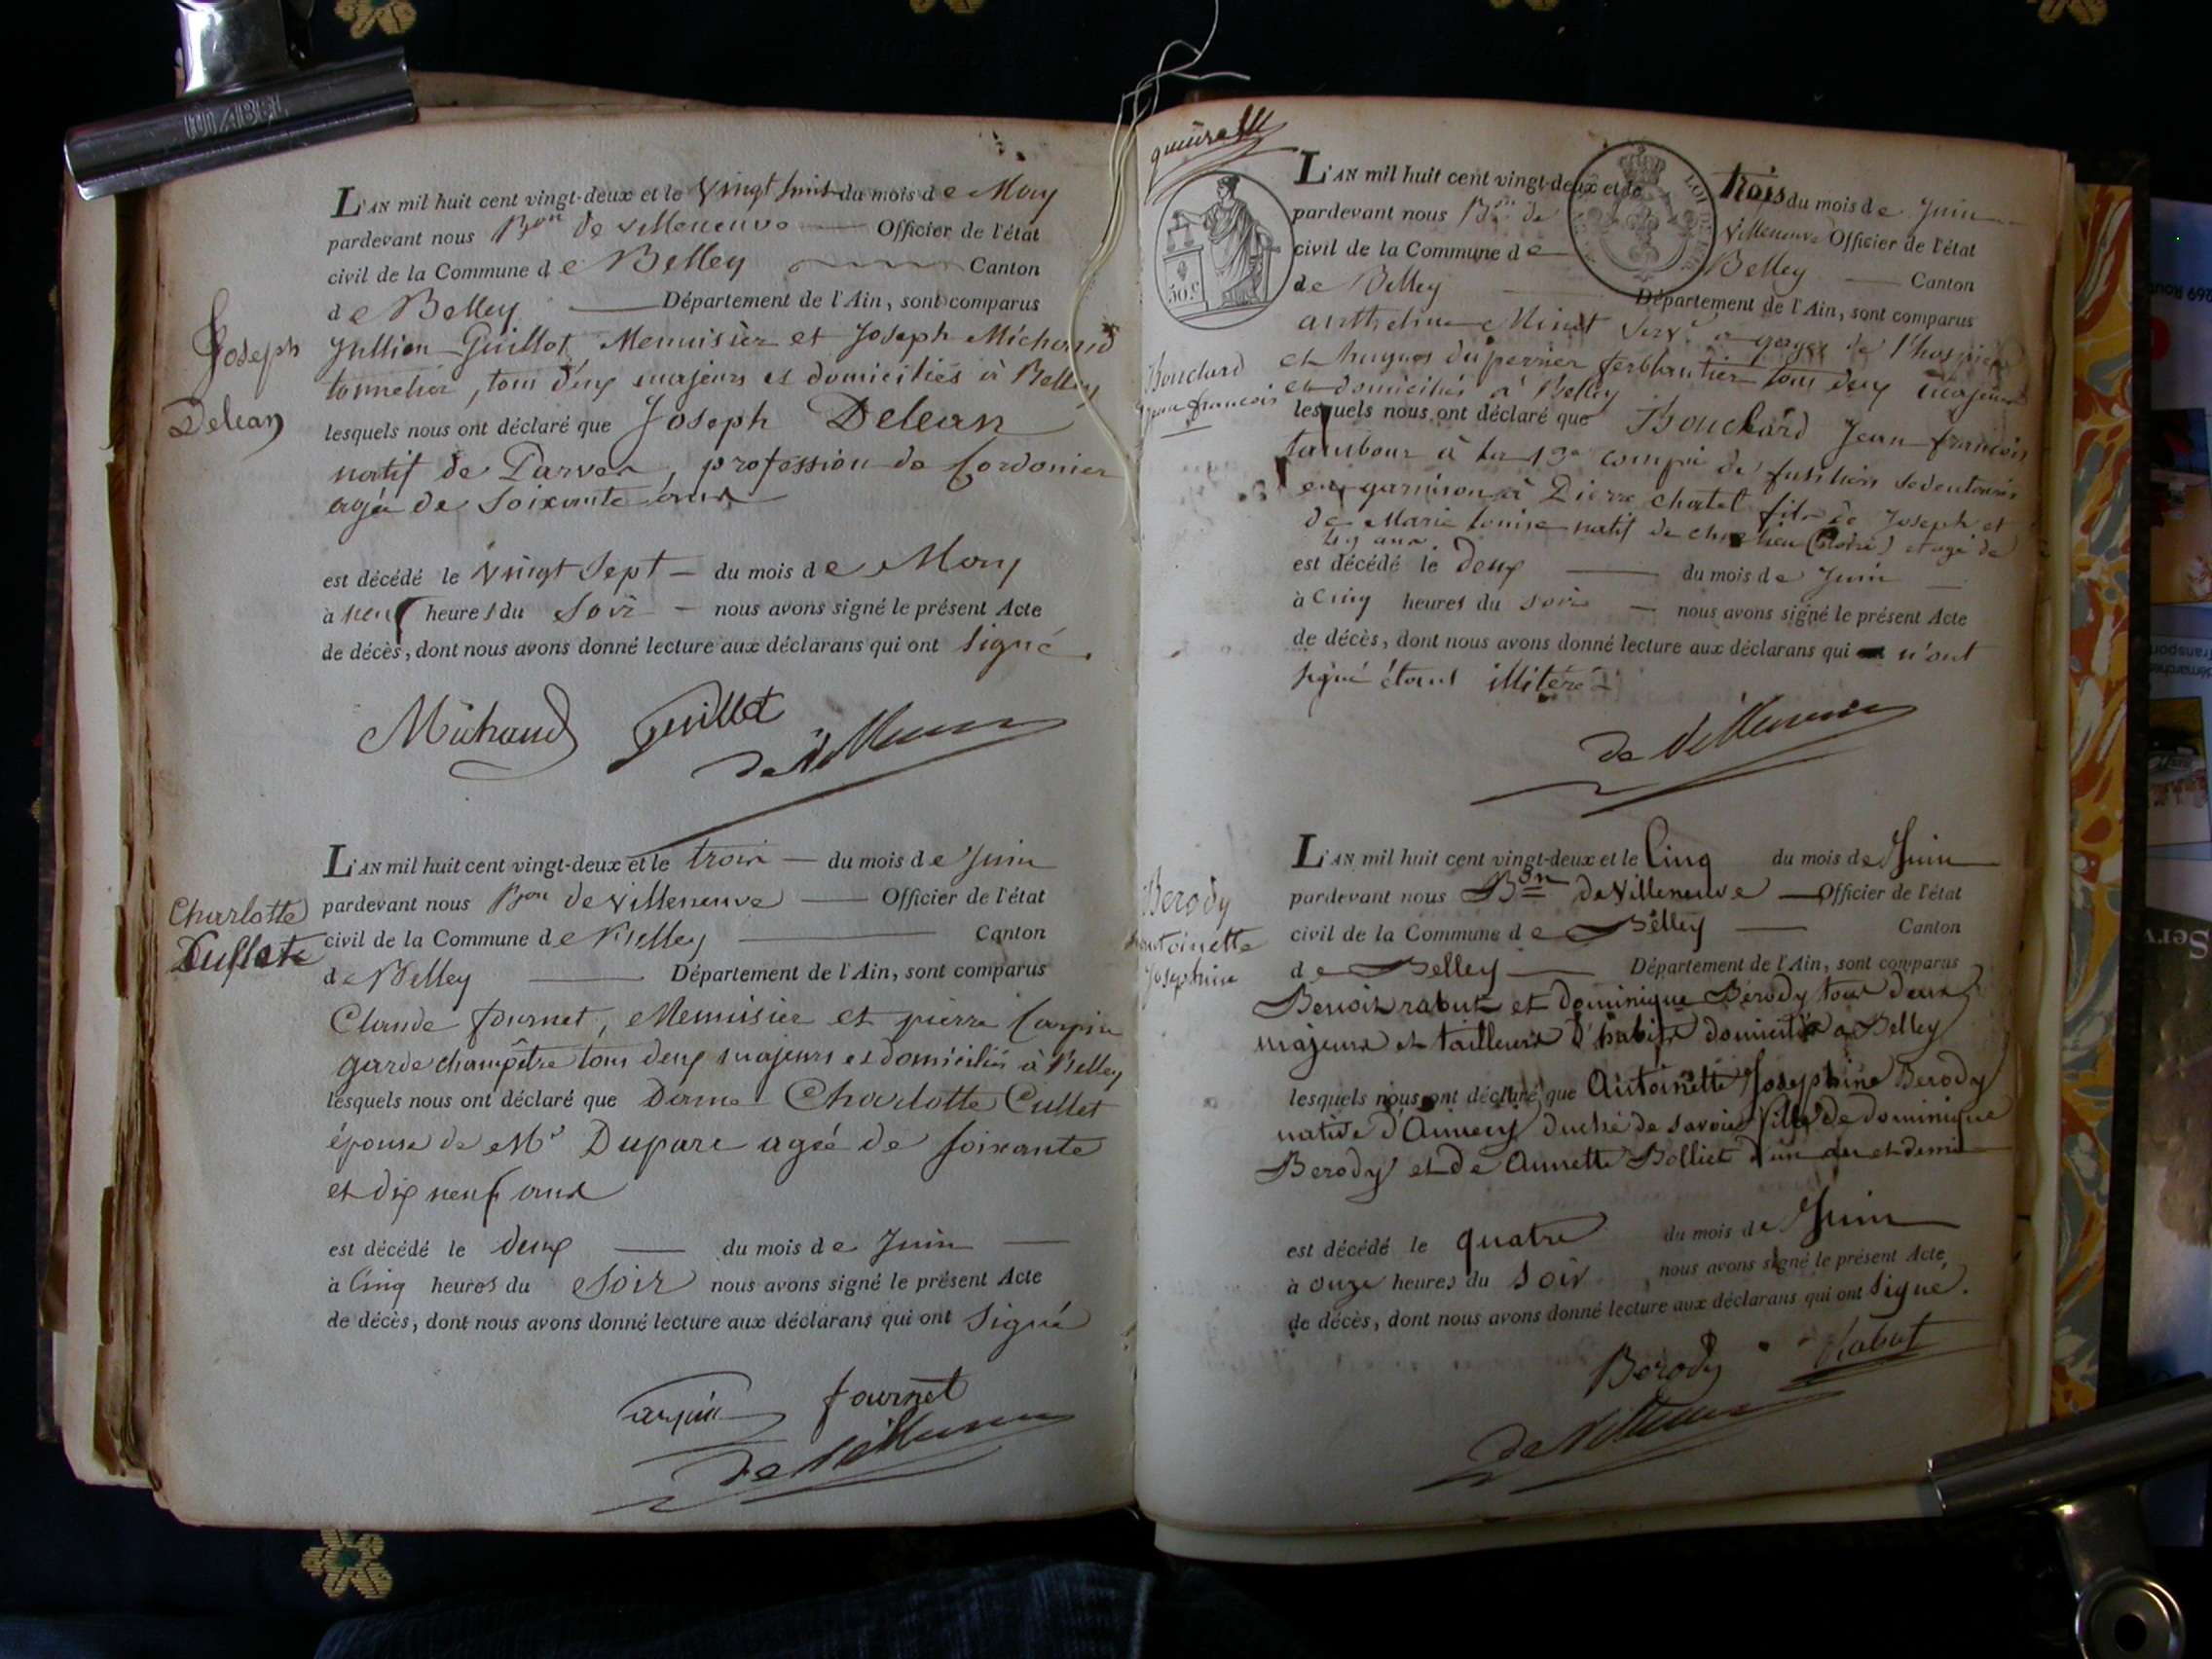 Joseph
Delean
L'AN mil huit cent vingt-deux et le vingt huit du mois de May
pardevant nous Bon de villeneuve Officier de l'état
civil de la Commune de Belley Canton
de Belley Département de l'Ain, sont comparus
Jullien Guillot Menuisier et Joseph Michaud
tonnelier, tous deux majeurs et domiciliés à Belley
lesquels nous ont déclaré que Joseph Delean
natif de Parves, profession de Cordonier
agé de Soixante ans
est décédé le vingt Sept du mois de May
à neuf heures du Soir nous avons signé le présent Acte
de décès, dont nous avons donné lecture aux déclarans qui ont signé.
Michaud Guillot
de Villeneuve
Charlotte
L'AN mil huit cent vingt-deux et le trois du mois de Juin
pardevant nous Bon de villeneuve Officier de l'état
civil de la Commune de Belley Canton
de Belley Département de l'Ain, sont comparus
Claude fournet, Menuisier et pierre Carpin
garde champêtre tous deux majeurs et domiciliés à Belley
lesquels nous ont déclaré que Dame Charlotte Cullet
épouse de Mr Duparc agée de soixante
et dix neuf ans
est décédé le deux du mois de Juin
à Cinq heures du Soir nous avons signé le présent Acte
de décès, dont nous avons donné lecture aux déclarans qui ont Signé
Carpin fournet
de Villeneuve
50 C.
LOI DE
Bouchard
Jean francois
L'AN mil huit cent vingt-deux et le Trois du mois de Juin
pardevant nous Bon de Villeneuve Officier de l'état
civil de la Commune de Belley Canton
de Belley Département de l'Ain, sont comparus
anthelme Minet à gages de l'hospice
et hugues duperrier ferblantier tous deux majeurs
et domiciliés à Belley
lesquels nous ont déclaré que Bouchard Jean francois
tambour à la 13e compie de fusiliers sedentaires
en garnison à Pierre chatel fils de Joseph et
de Marie Louise natif de et agé de
ans
est décédé le deux du mois de Juin
à Cinq heures du soir nous avons signé le présent Acte
de décès, dont nous avons donné lecture aux déclarans qui n'ont
signé étant illitéré
de Villeneuve
Berody
antoinette
Josephine
L'AN mil huit cent vingt-deux et le Cinq du mois de Juin
pardevant nous Bon de Villeneuve Officier de l'état
civil de la Commune de Belley Canton
de Belley Département de l'Ain, sont comparus
Benoit rabut et dominique Berody tous deux
majeurs et tailleurs d'habits domiciliés a Belley
lesquels nous ont déclaré que Antoinette Josephine Berody
native d'Annecy duché de Savoie fille de dominique
Berody et de Annette Bolliet d'un an et demi
est décédé le quatre du mois de Juin
à onze heures du soir nous avons signé le présent Acte
de décès, dont nous avons donné lecture aux déclarans qui ont signé.
Berody Rabut
de Villeneuve